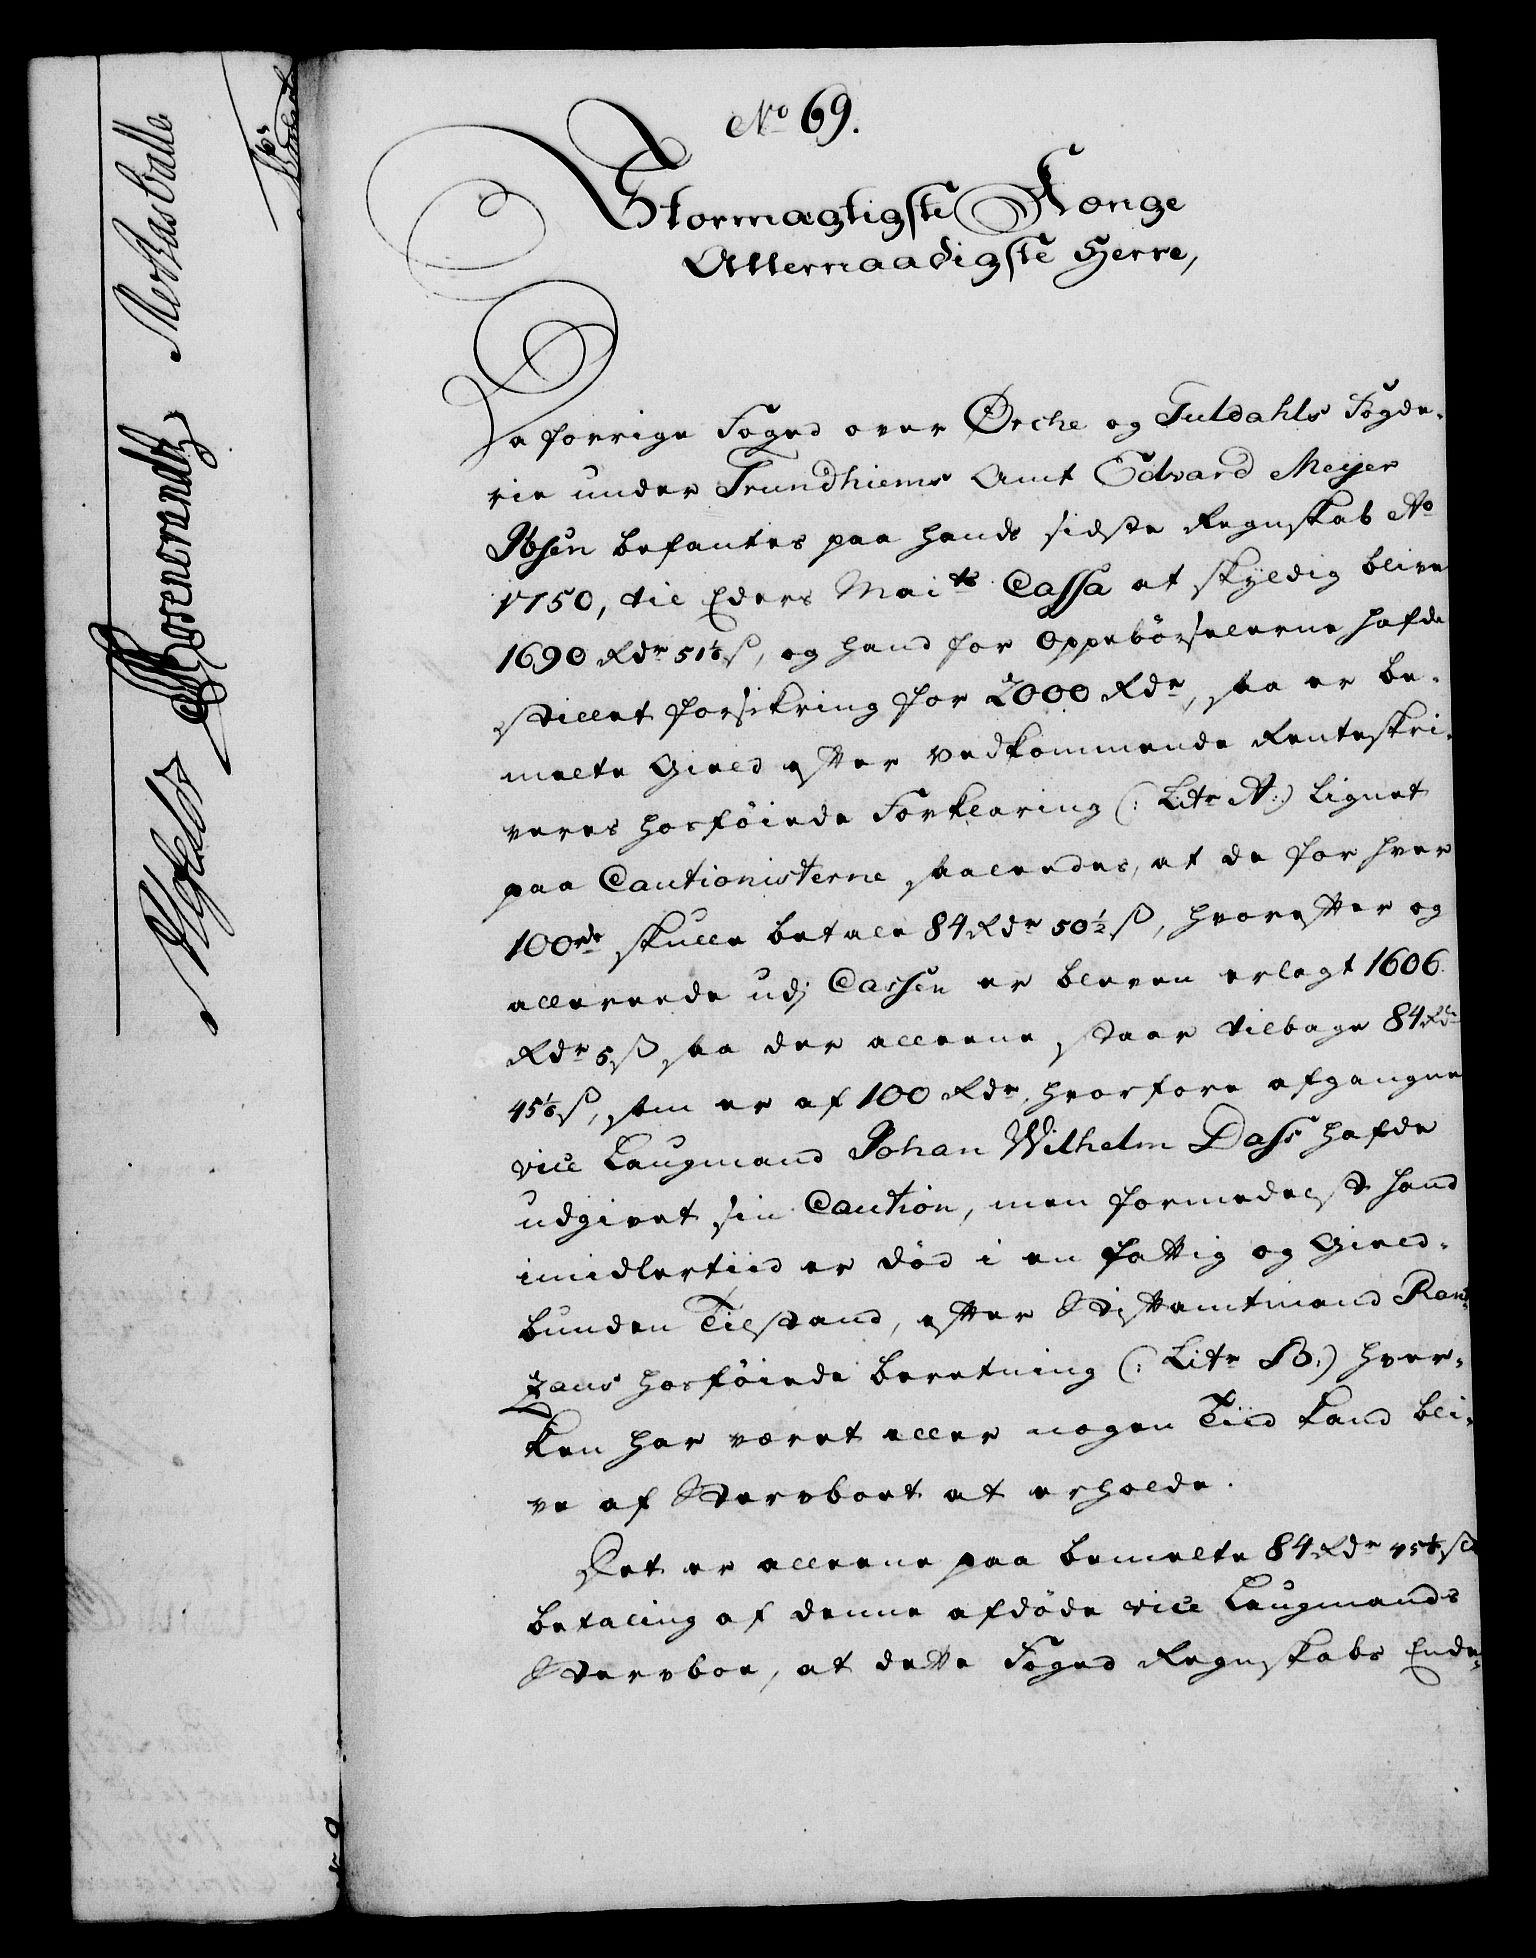 No 69.
Stormægtigste Konge
Allernaadigste Herre,
Da forrige Foged over Ørche og Guldahls Fogde-
rie under Trundhiems Amt Edvard Meyer
Ibsen befantes paa hands sidste Regnskab Ao
1750, til Eders Maits Cassa at skyldig blive
1690 Rdr 51⅙ ß, og hand for Oppebørselerne hafde
stillet forsikring for 2000 Rdr, saa er be-
melte Gield efter vedkommende Renteskri-
veres hosföiede Forklaring (: Litr A:) lignet
paa Cautionisterne saaledes, at de for hver
100de skulle betale 84 Rdr 50½ ß, hvorefter og
allereede udj Cassen er bleven erlagt 1606
Rdr 5 ß saa der alleene staar tilbage 84 Rdr
45⅙ ß, som er af 100 Rdr, hvorfore afgangne
vice Laugmand Johan Wilhelm Dass hafde
udgivet sin Caution, men formedelst hand
imidlertiid er död i en fattig og Gield-
bunden Tilstand, efter Stiftamtmand Rant-
zaus hosföiede beretning (: Litr B:) hver-
ken har været eller nogen Tiid kand bli-
ve af Stervboet at erholde.
Det er alleene paa bemelte 84 Rdr 45⅙ ß
betaling af denne afdöde vice Laugmands
Stervboe, at dette Foged Regnskabs Ende-